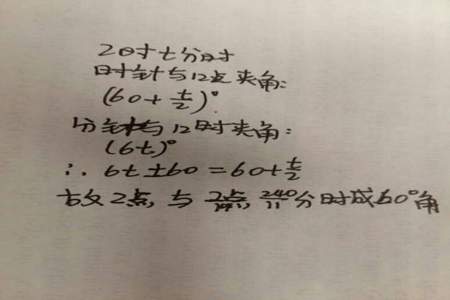 2时七分时
时针与12点夹角:
(60+t/2)°
分针与12时夹角:
(6t)°
∴ 6t±60=60+t/2
故2点,与2点,240/11分时成60°角